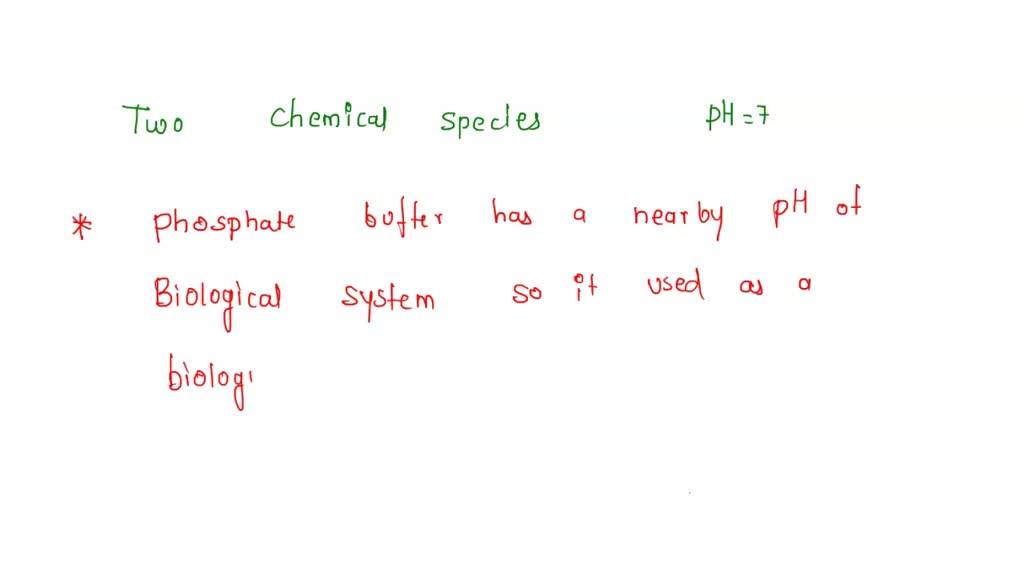 Two chemical species pH = 7
* Phosphate buffer has a nearby pH of
Biological system so it used as a
biologi